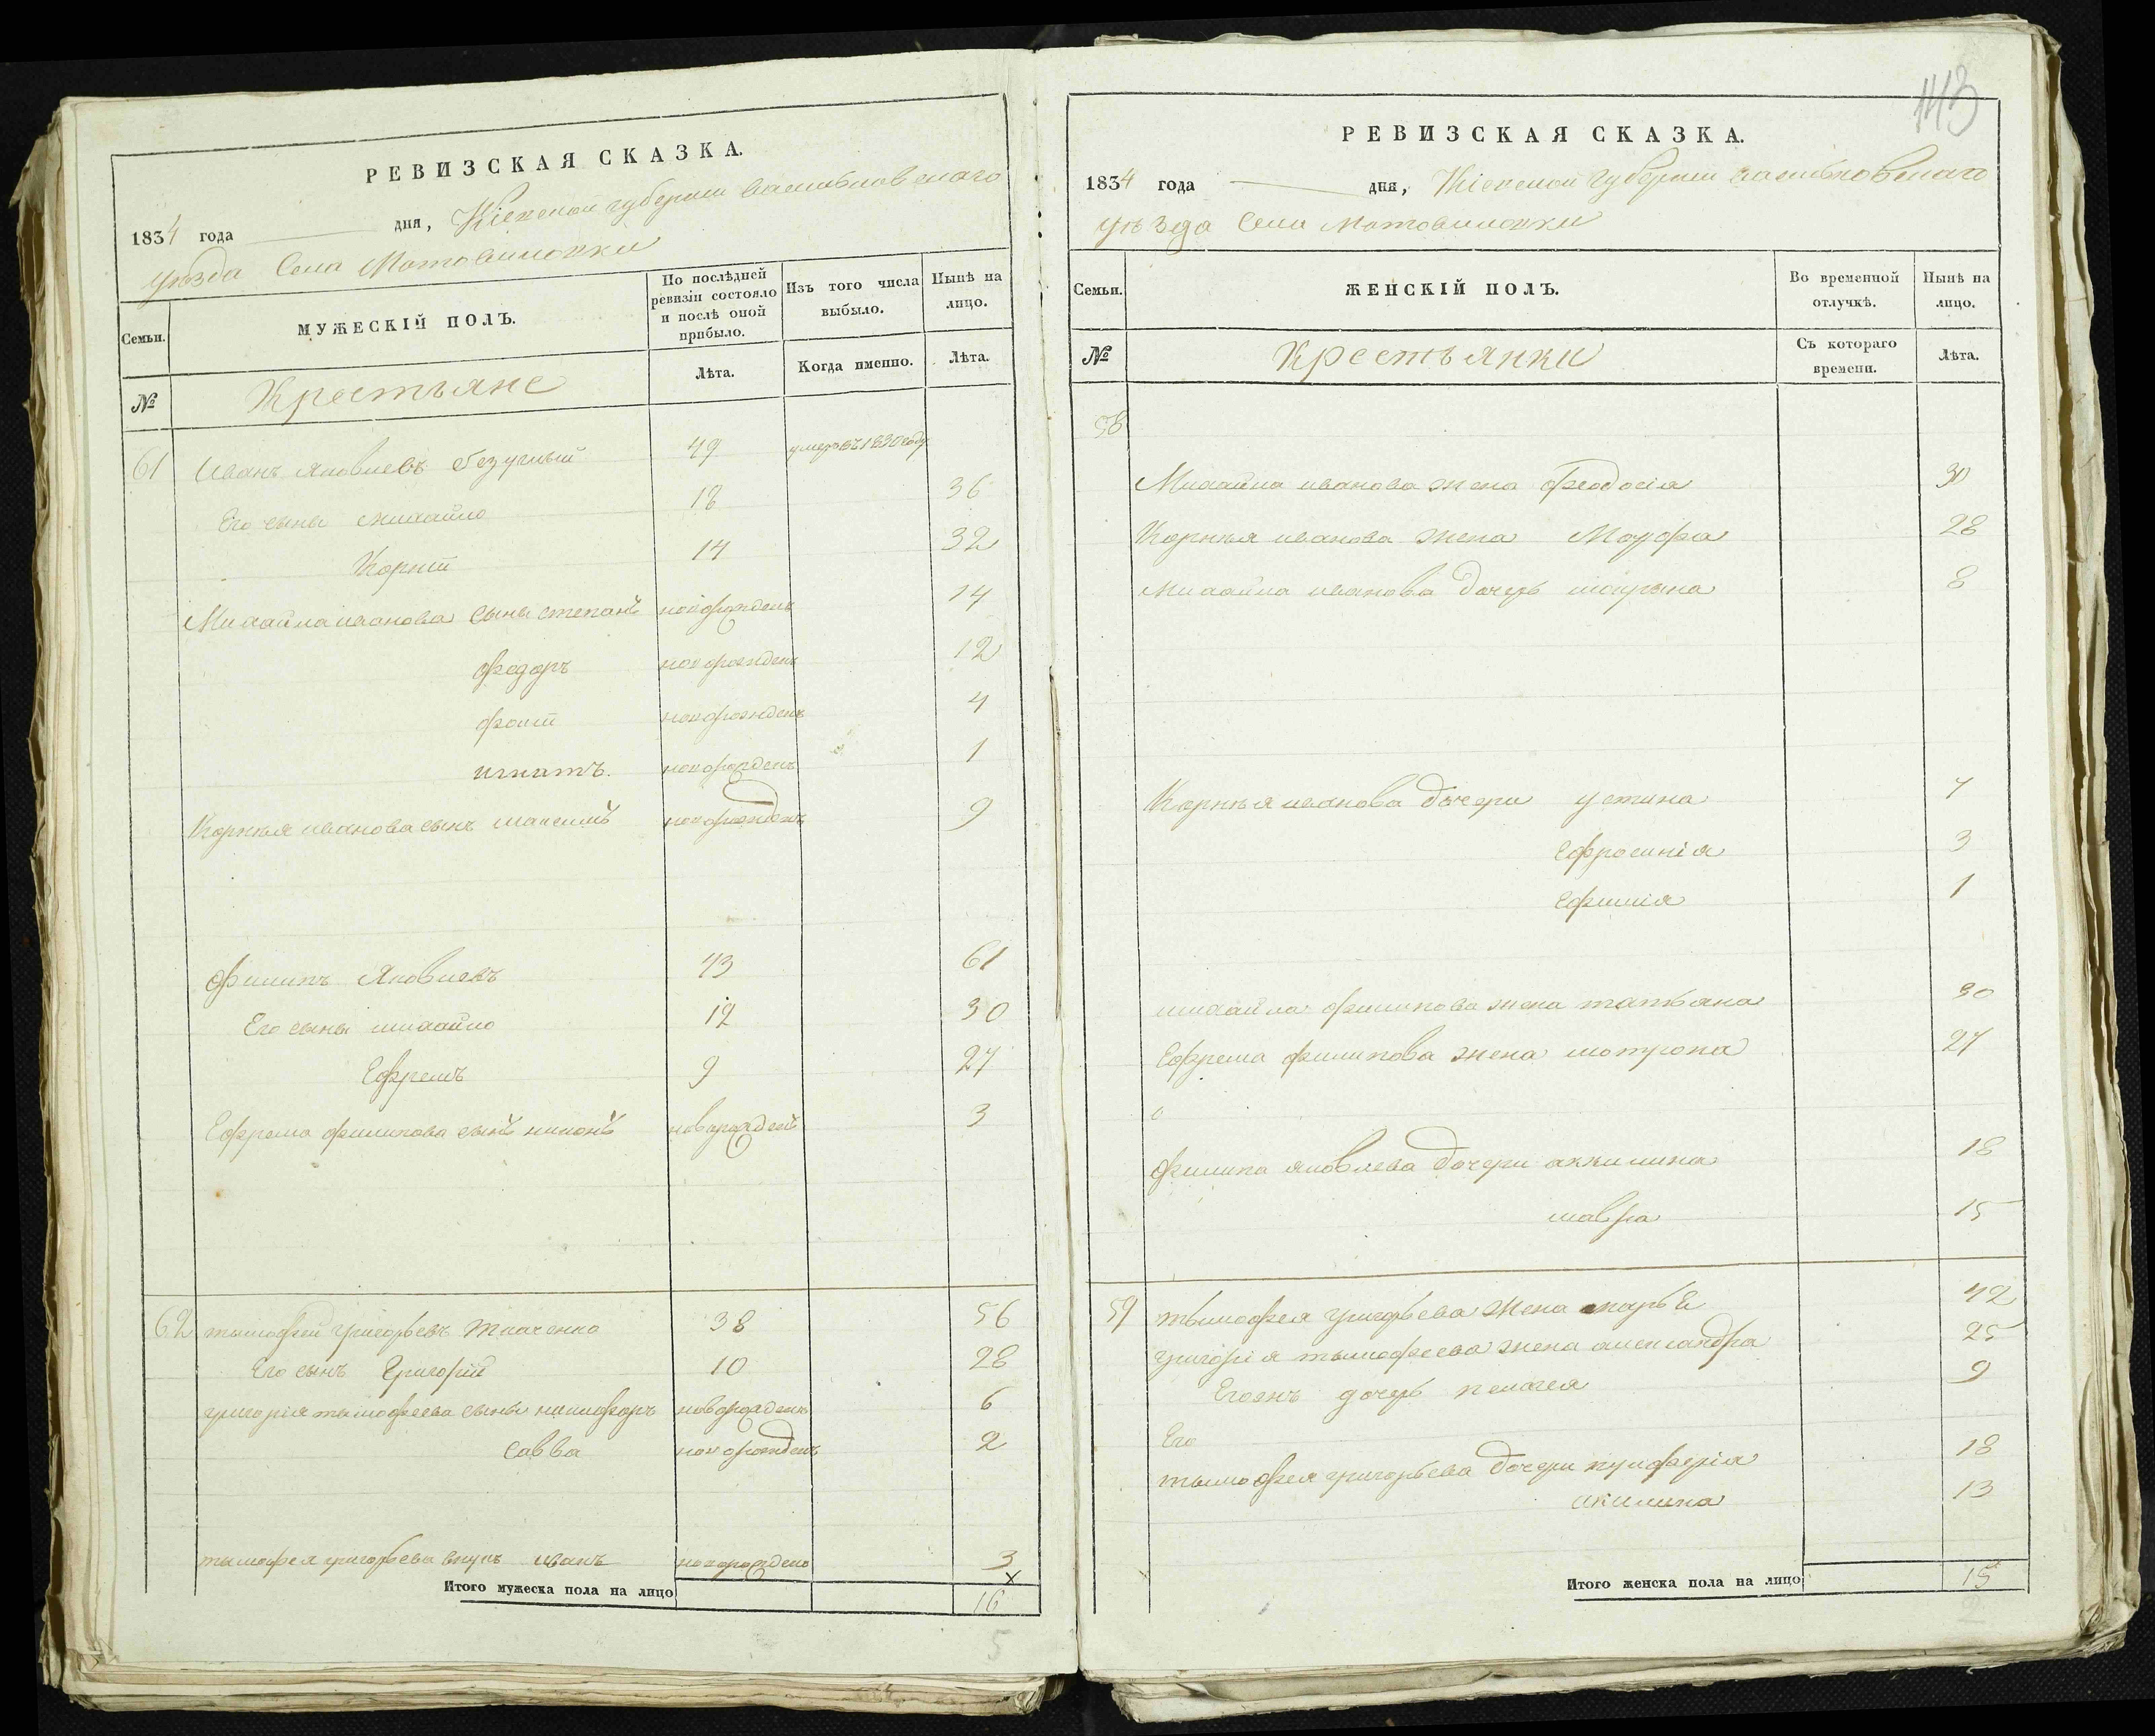 РЕВИЗСКАЯ СКАЗКА.
1834 года дня, Кіевской губерніи Васильковскаго
уѣзда Села Мотовиловки
Семьи. МУЖЕСКІЙ ПОЛЪ. По послѣдней ревизіи состояло и послѣ оной прибыло. Изъ того числа выбыло. Нынѣ на лицо.
№ Крестьяне Лѣта. Когда именно. Лѣта.
61 Иванъ Яковлевъ 49 умеръ въ 1830 году
Его сыны михайло 18 36
Корній 14 32
Михайла иванова сыны степанъ новорожденъ 14
федоръ новорожденъ 12
фомій новорожденъ 4
игнатъ. новорожденъ 1
Корнѣя иванова сынъ максимъ новорожденъ 9
Филипъ Яковлевъ 43 61
Его сыны михайло 12 30
Ефремъ 9 27
Ефрема филипова сынъ новорожденъ 3
62 тымофей григорьевъ Ткаченко 38 56
Его сынъ Григорій 10 28
григорія тымофеева сыны никифоръ новорожденъ 6
савва новорожденъ 2
тымофея григорьева внукъ иванъ новорожденъ 3
Итого мужеска пола на лицо 16
5
143
РЕВИЗСКАЯ СКАЗКА.
1834 года дня, Кіевской губерніи Васильковскаго
уѣзда Села Мотовиловки
Семьи. ЖЕНСКІЙ ПОЛЪ. Во временной отлучкѣ. Нынѣ на лицо.
№ Крестьянки Съ котораго времени. Лѣта.
58
Михайла иванова жена феодосія 30
Корнѣя иванова жена Марфа 28
Михайла иванова дочерь 8
Корнѣя иванова дочери устина 7
Ефросинія 3
Ефимія 1
михайла филипова жена татьяна 30
Ефрема филипова жена мотрона 27
филипа яковлева дочери аккилина 18
мавра 15
59 тымофея григорьева жена марья 42
григорія тымофеева жена александра 25
дочерь пелагея 9
Его
тымофея григорьева дочери пулферія 18
акилина 13
Итого женска пола на лицо 15